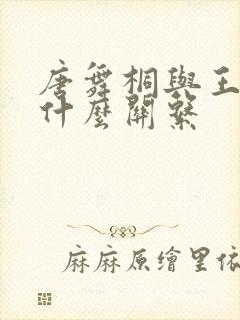 唐舞桐與王
什麼關繫
麻麻原繪里依